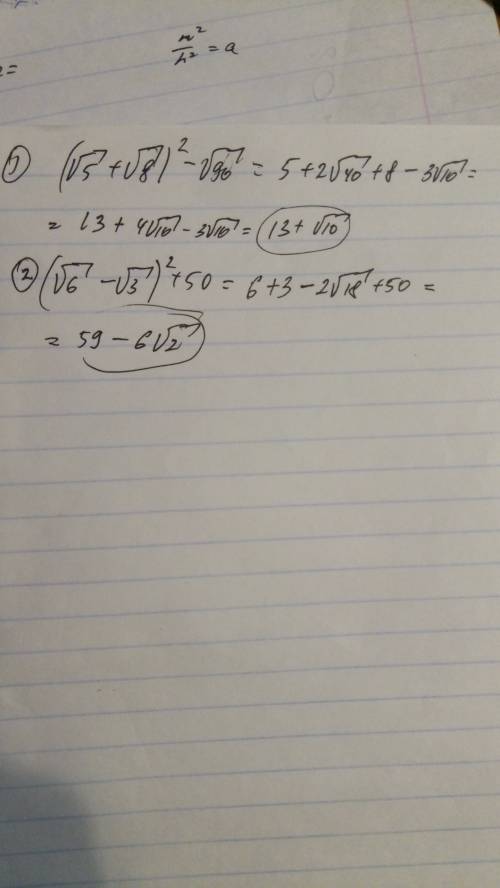 n²/h² = a
2=
1) (√5 + √8)² - √90 = 5 + 2√40 + 8 - 3√10 =
= 13 + 4√10 - 3√10 = 13 + √10
2) (√6 - √3)² + 50 = 6 + 3 - 2√18 + 50 =
= 59 - 6√2